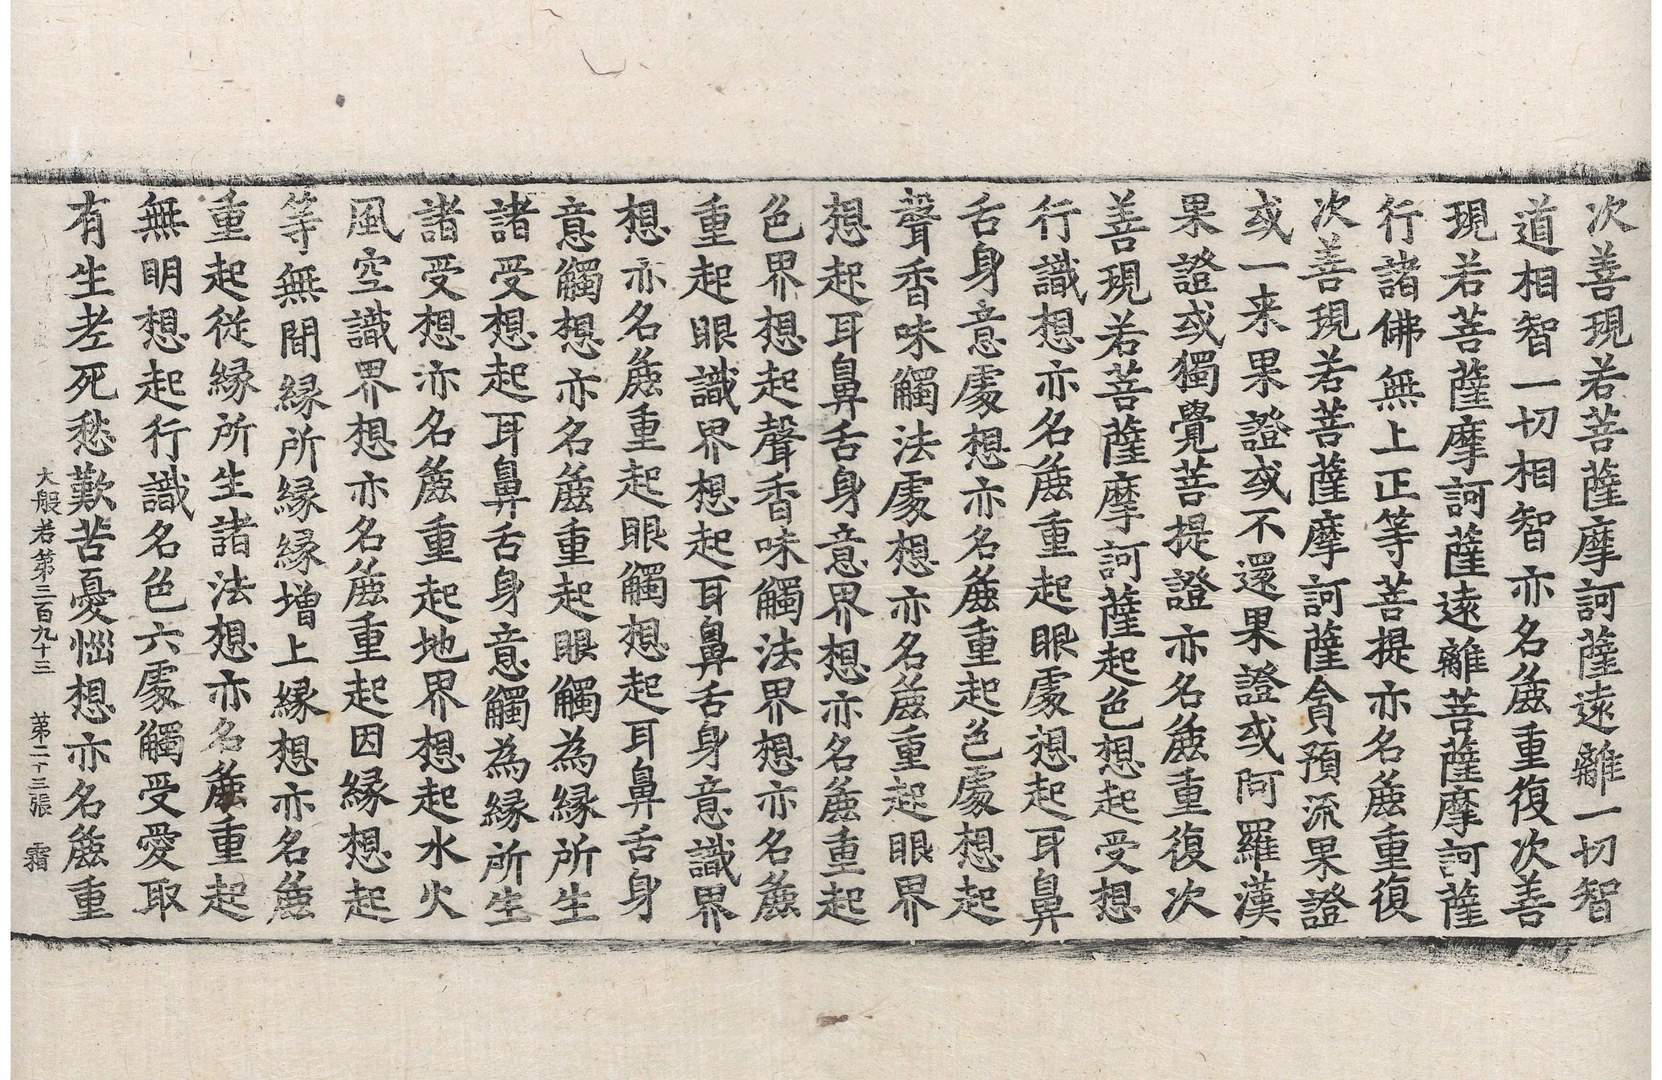 次善現若菩薩摩訶薩遠離一切智
道相智一切相智亦名麁重復次善
現若菩薩摩訶薩遠離菩薩摩訶薩
行諸佛無上正等菩提亦名麁重復
次善現若菩薩摩訶薩貪預流果證
或一来果證或不還果證或阿羅漢
果證或獨覺菩提證亦名麁重復次
善現若菩薩摩訶薩起色想起受想
行識想亦名麁重起眼處想起耳鼻
舌身意處想亦名麁重起色處想起
聲香味觸法處想亦名麁重起眼界
想起耳鼻舌身意界想亦名麁重起
色界想起聲香味觸法界想亦名麁
重起眼識界想起耳鼻舌身意識界
想亦名麁重起眼觸想起耳鼻舌身
意觸想亦名麁重起眼觸為緣所生
諸受想起耳鼻舌身意觸為緣所生
諸受想亦名麁重起地界想起水火
風空識界想亦名麁重起因緣想起
等無間緣所緣緣增上緣想亦名麁
重起從緣所生諸法想亦名麁重起
無明想起行識名色六處觸受愛取
有生老死愁歎苦憂惱想亦名麁重
大般若第三百九十三 第二十三張 霜